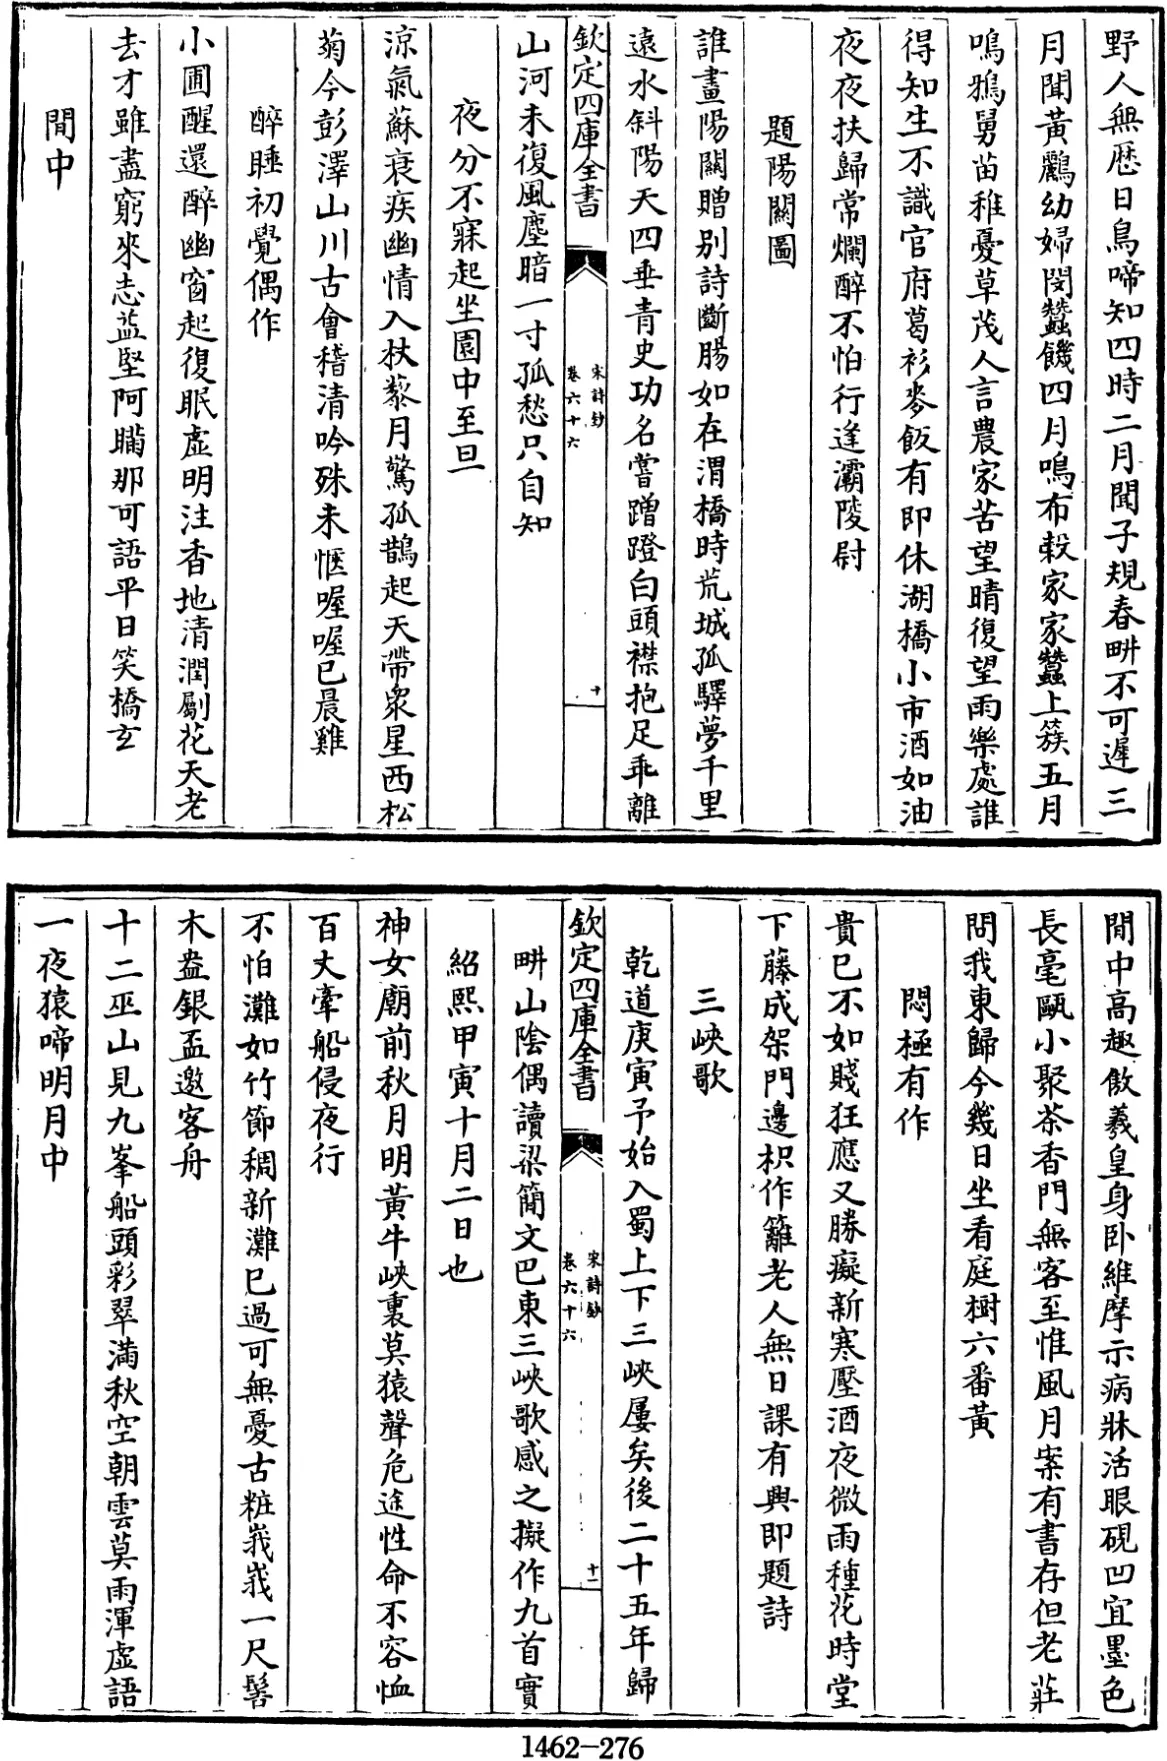 野人無歴日鳥啼知四時二月聞子規春畊不可遲三
月聞黃鸝幼婦閔蠶饑四月鳴布穀家家蠶上簇五月
鳴鴉舅苗稚憂草茂人言農家苦望晴復望雨樂處誰
得知生不識官府葛衫麥飯有即休湖橋小市酒如油
夜夜扶歸常爛醉不怕行逢灞陵尉
題陽關圖
誰畫陽關贈別詩斷腸如在渭橋時荒城孤驛夢千里
遠水斜陽天四垂青史功名嘗蹭蹬白頭襟抱足乖離
欽定四庫全書
宋詩鈔
卷六十六
十
山河未復風塵暗一寸孤愁只自知
夜分不寐起坐園中至旦
涼氣蘇衰疾幽情入杖藜月驚孤鵲起天帶衆星西松
菊今彭澤山川古會稽清吟殊未愜喔喔已晨雞
醉睡初覺偶作
小圃醒還醉幽窗起復眠虛明注香地清潤劚花天老
去才雖盡窮來志益堅阿瞞那可語平日笑橋玄
閒中
閒中高趣傲羲皇身臥維摩示病牀活眼硯凹宜墨色
長毫甌小聚茶香門無客至惟風月案有書存但老莊
問我東歸今幾日坐看庭樹六番黃
悶極有作
貴已不如賤狂應又勝癡新寒壓酒夜微雨種花時堂
下藤成架門邊枳作籬老人無日課有興即題詩
三峽歌
乾道庚寅予始入蜀上下三峽屢矣後二十五年歸
欽定四庫全書
宋詩鈔
卷六十六
十一
畊山陰偶讀梁簡文巴東三峽歌感之擬作九首實
紹熙甲寅十月二日也
神女廟前秋月明黃牛峽裏莫猿聲危途性命不容恤
百丈牽船侵夜行
不怕灘如竹節稠新灘已過可無憂古粧峩峩一尺髻
木盎銀盃邀客舟
十二巫山見九峯船頭彩翠滿秋空朝雲莫雨渾虛語
一夜猿啼明月中
1462—276